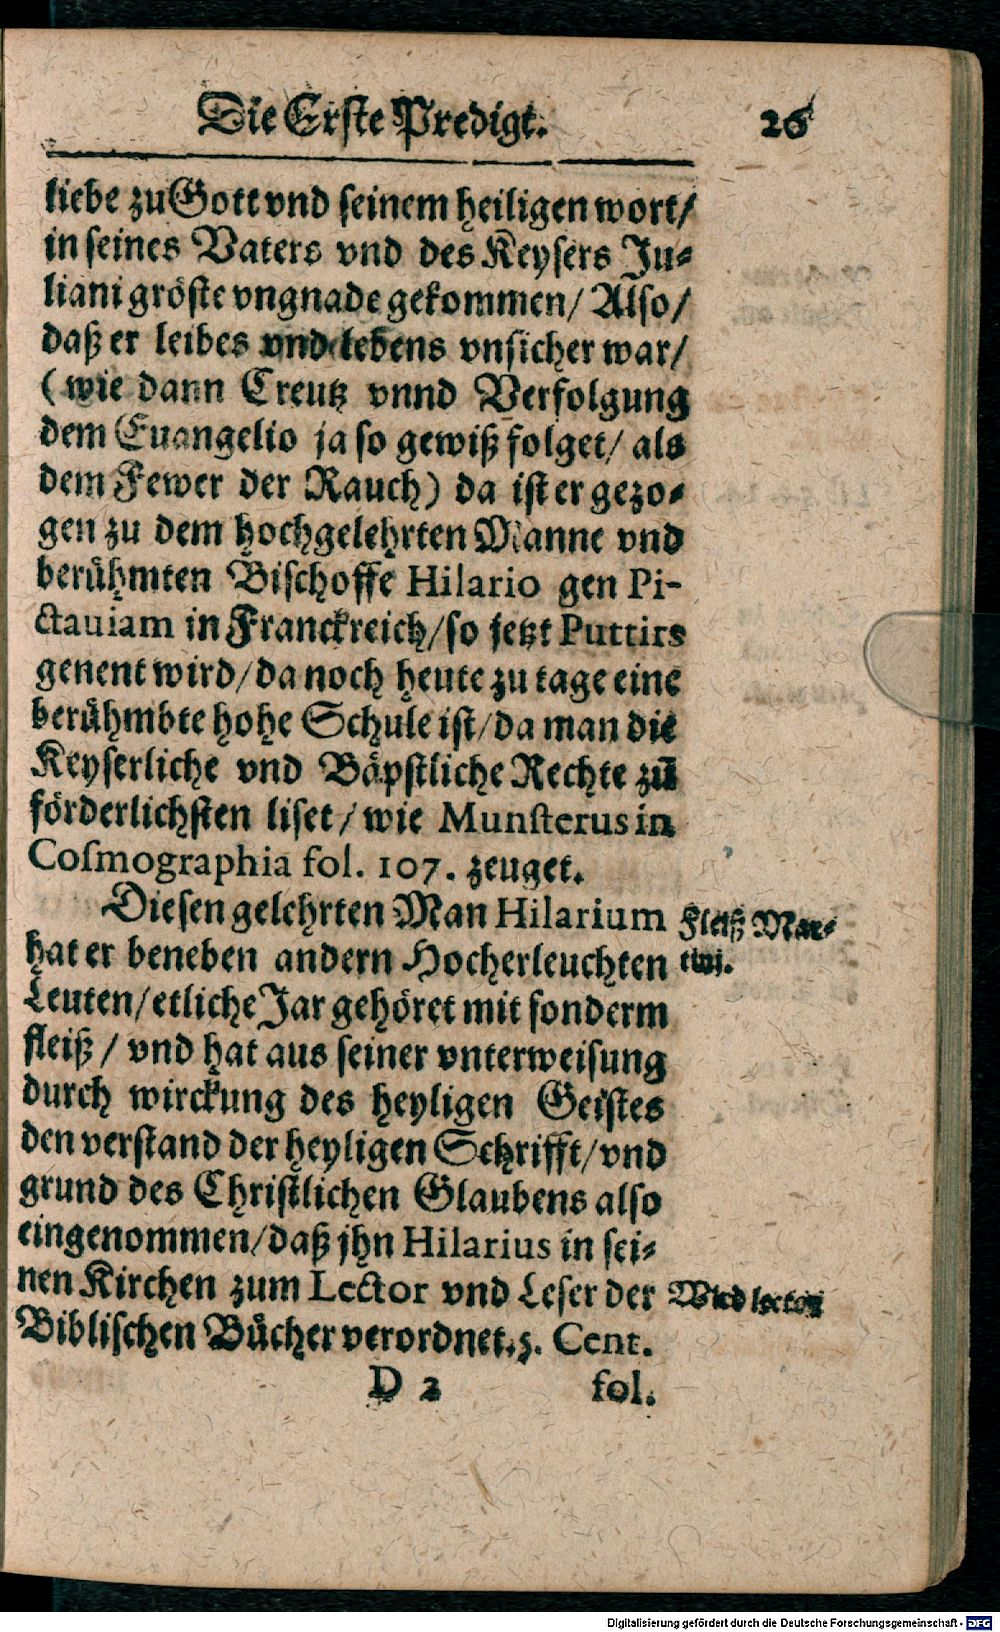 Die Erste Predigt. 26
liebe zu Gott vnd seinem heiligen wort/
in seines Vaters vnd des Keysers Ju-
liani gröste vngnade gekommen/ Also/
daß er leibes vnd lebens vnsicher war/
(wie dann Creutz vnnd Verfolgung
dem Euangelio ja so gewiß folget/ als
dem Fewer der Rauch) da ist er gezo-
gen zu dem hochgelehrten Manne vnd
berühmten Bischoffe Hilario gen Pi-
ctauiam in Franckreich/ so jetzt Puttirs
genent wird/ da noch heute zu tage eine
berühmbte hohe Schule ist/ da man die
Keyserliche vnd Bäpstliche Rechte zū
förderlichsten liset/ wie Munsterus in
Cosmographia fol. 107. zeuget.
Diesen gelehrten Man Hilarium
Fleiß Mar-
hat er beneben andern Hocherleuchten
tini.
Leuten/ etliche Jar gehöret mit sonderm
fleiß/ vnd hat aus seiner vnterweisung
durch wirckung des heyligen Geistes
den verstand der heyligen Schrifft/ vnd
grund des Christlichen Glaubens also
eingenommen/ daß jhn Hilarius in sei-
nen Kirchen zum Lector vnd Leser der
Wird lector
Biblischen Bücher verordnet. 5. Cent.
D 2 fol.
Digitalisierung gefördert durch die Deutsche Forschungsgemeinschaft - DFG